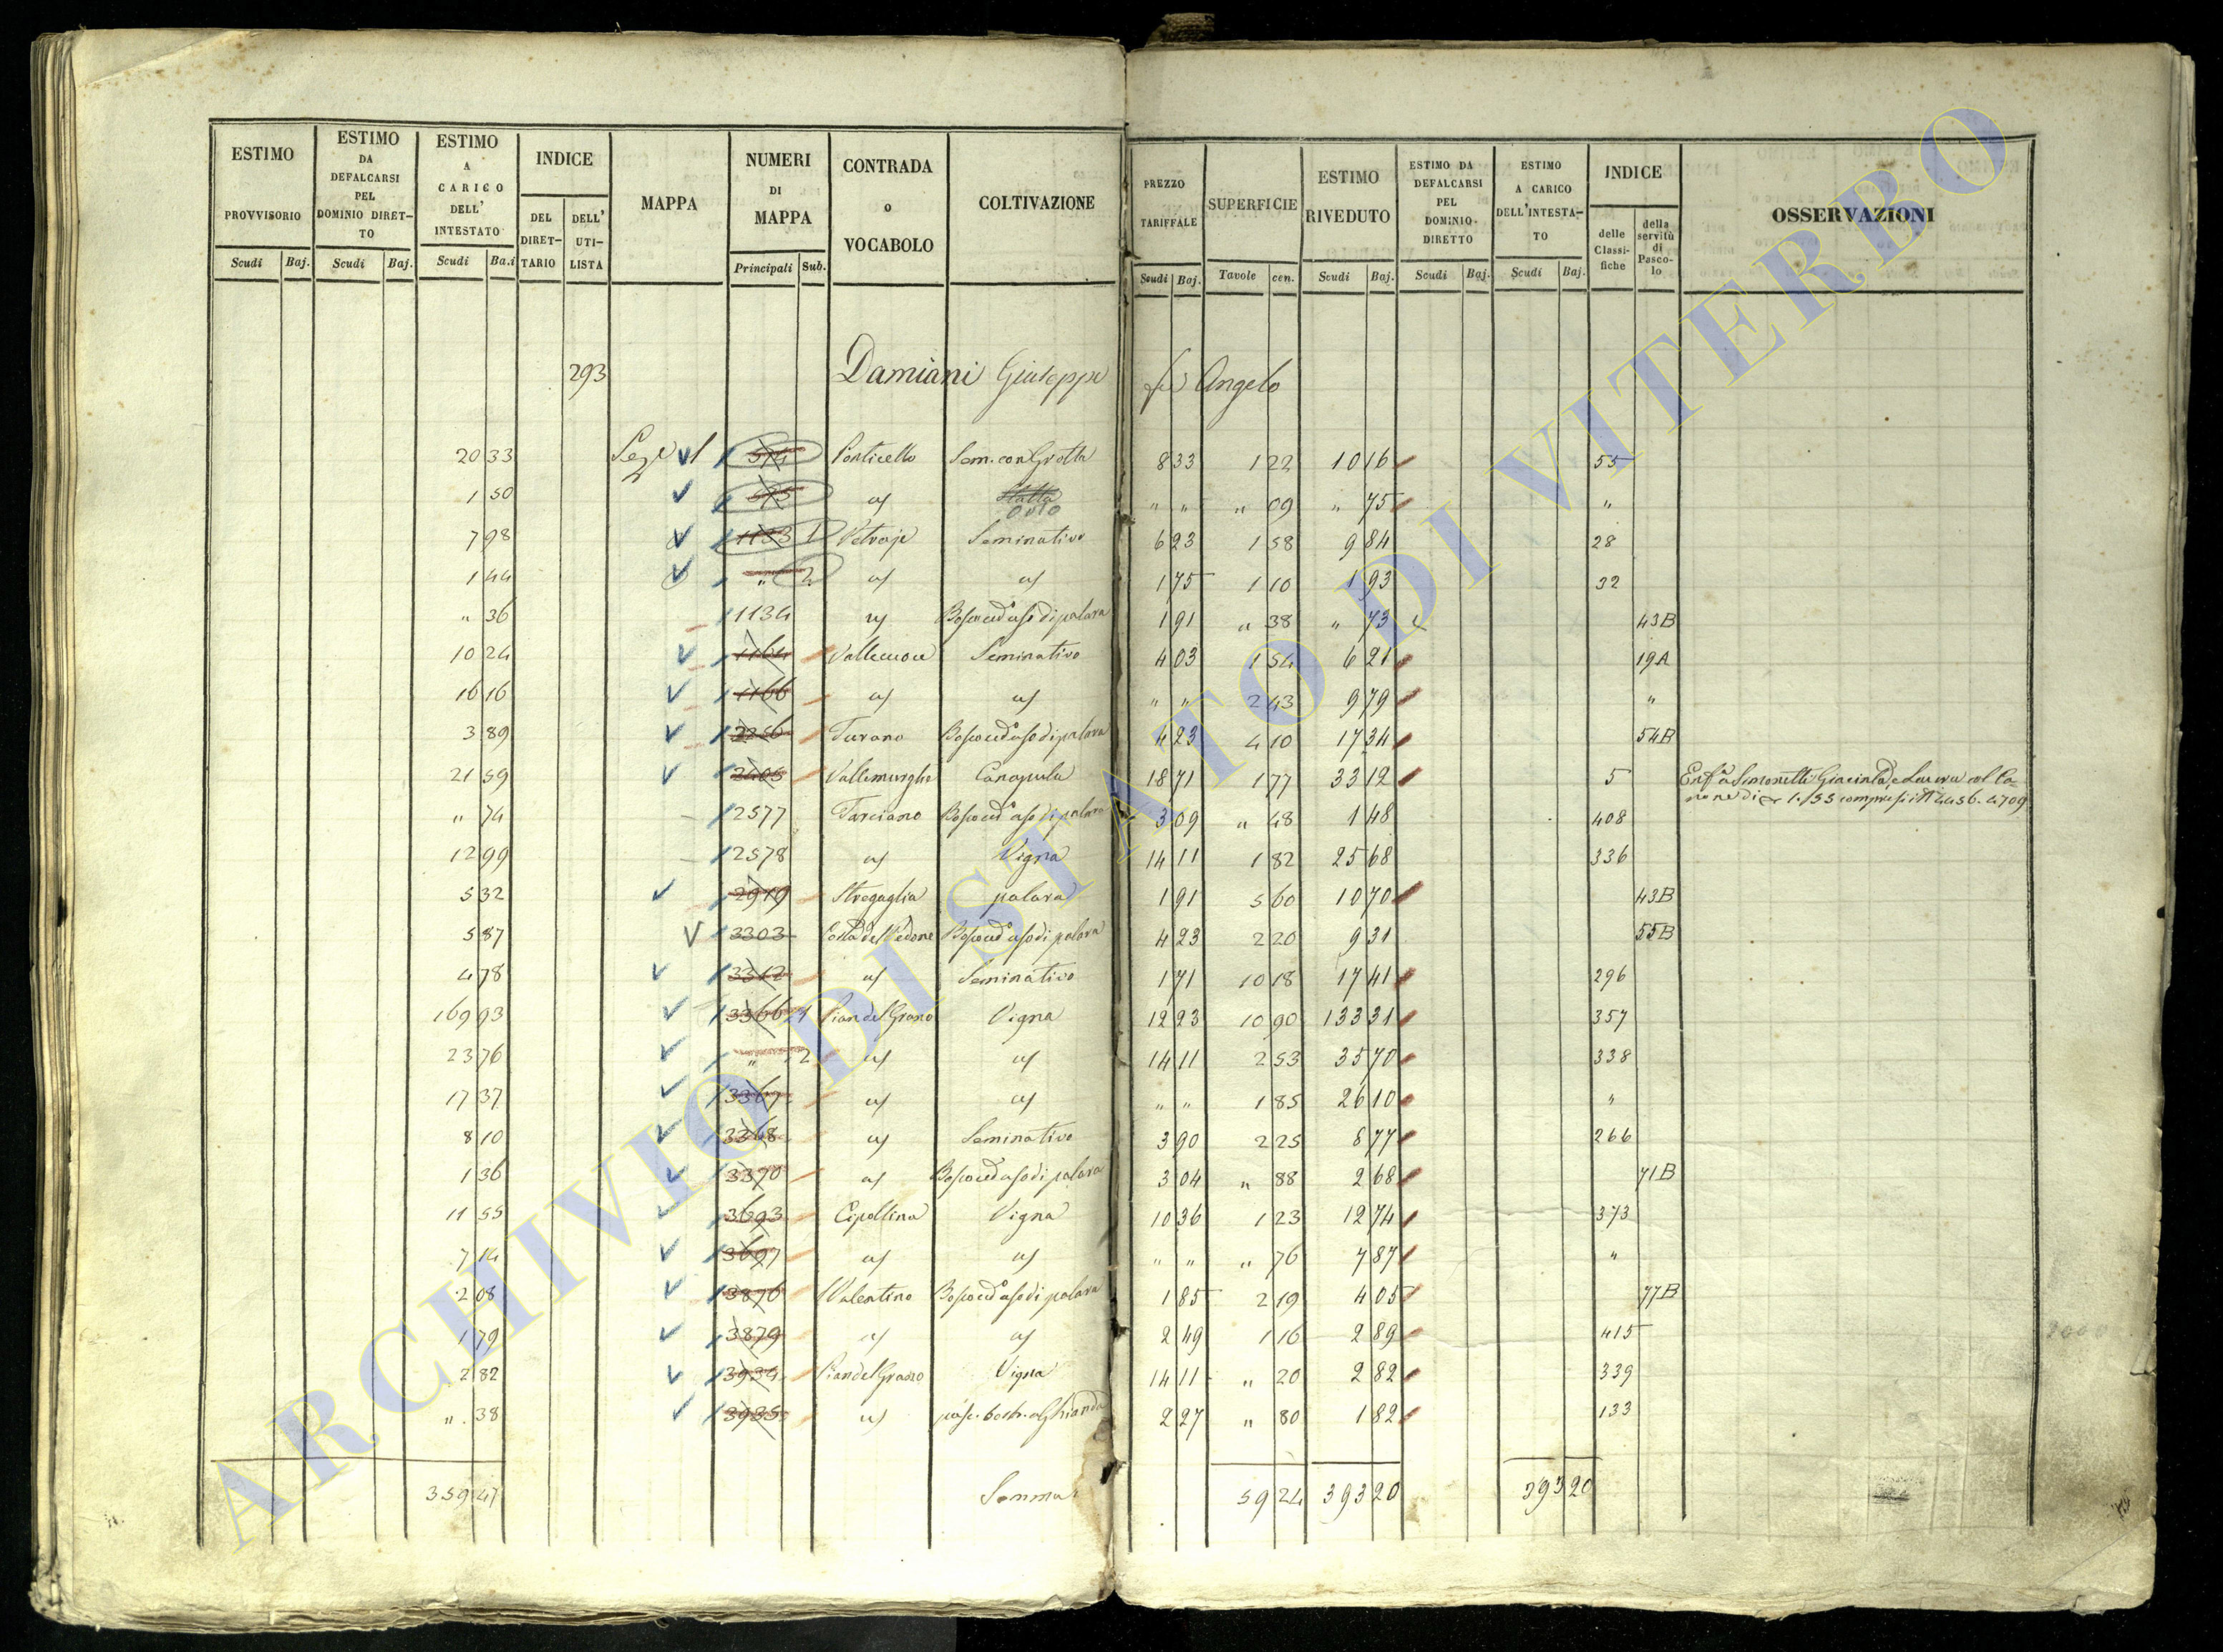 ESTIMO PROVVISORIO Scudi Baj.
ESTIMO DA DEFALCARSI PEL DOMINIO DIRET-TO Scudi Baj.
ESTIMO A CARICO DELL' INTESTATO Scudi Ba.i
INDICE DEL DIRET-TARIO DELL' UTI-LISTA
MAPPA
NUMERI DI MAPPA Principali Sub.
CONTRADA o VOCABOLO
COLTIVAZIONE
PREZZO TARIFFALE Scudi Baj.
SUPERFICIE Tavole cen.
ESTIMO RIVEDUTO Scudi Baj.
ESTIMO DA DEFALCARSI PEL DOMINIO DIRETTO Scudi Baj.
ESTIMO A CARICO DELL'INTESTA-TO Scudi Baj.
INDICE delle Classi-fiche della servitù di Pasco-lo
OSSERVAZIONI
293 Damiani Giuseppe fu Angelo
20 33 514 Ponticello Sem. con Grotta 8 33 1 22 10 16 55
1 50 515 Stalla Orto " " " 09 " 75 "
7 98 1133 1 Petraje Seminativo 6 23 1 58 9 84 28
1 44 " 2 1 75 1 10 1 93 32
" 36 1134 Bosco ced. uso di palara 1 91 " 38 " 73 43B
10 24 1164 Seminativo 4 03 1 54 6 21 19A
16 16 1166 " " 2 43 9 79 "
3 89 2256 Turano Bosco ced. uso di palara 4 23 4 10 17 34 54B
21 59 2405 Canapula 18 71 1 77 33 12 5 Enf.a Simonetti Giacinta e Laura col Ca-
none di 1.55 compresi i N 4456. 4709
" 74 2577 Tarciano Bosco ced. uso di palara 3 09 " 48 1 48 408
12 99 2578 Vigna 14 11 1 82 25 68 336
5 32 2919 Stregaglia palara 1 91 5 60 10 70 43B
5 87 3303 Bosco ced. uso di palara 4 23 2 20 9 31 55B
4 78 3312 Seminativo 1 71 10 18 17 41 296
169 93 3366 1 Pian del Grano Vigna 12 23 10 90 133 31 357
23 76 " 2 14 11 2 53 35 70 338
17 37 3367 " " 1 85 26 10 "
8 10 3368 Seminativo 3 90 2 25 8 77 266
1 36 3370 Bosco ced. uso di palara 3 04 " 88 2 68 71B
11 55 3693 Cipollina Vigna 10 36 1 23 12 74 373
7 14 3697 " " " 76 7 87 "
2 08 3876 Valentino Bosco ced. uso di palara 1 85 2 19 4 05 77B
1 79 3879 2 49 1 16 2 89 415
2 82 3934 Pian del Grano Vigna 14 11 " 20 2 82 339
" 38 3935 2 27 " 80 1 82 133
359 47 Somma 59 24 393 20 393 20
ARCHIVIO DI STATO DI VITERBO